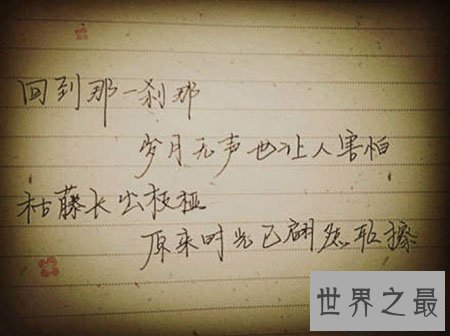 回到那一刹那
岁月无声也让人害怕
枯藤长出枝桠
原来时光已翩然轻擦
世界之最